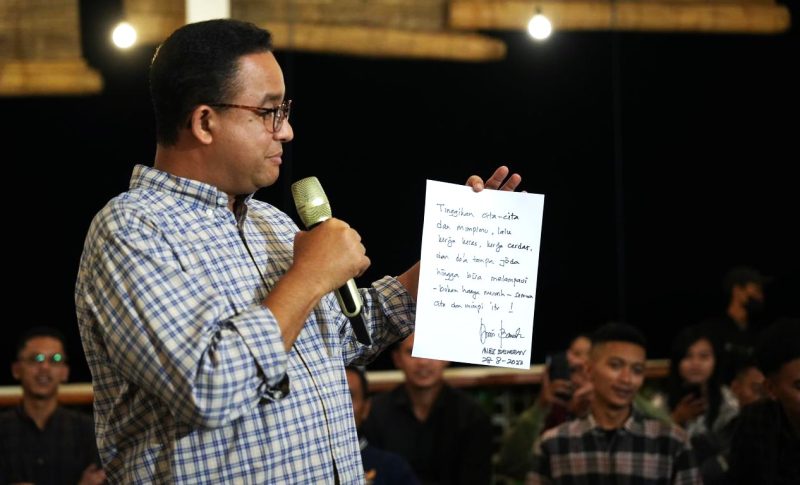 Tinggikan cita-cita
dan mimpimu, lalu
kerja keras, kerja cerdas,
dan do'a tanpa jeda
hingga bisa melampaui
- bukan hanya meraih - semua
cita dan mimpi itu !
ANIES BASWEDAN